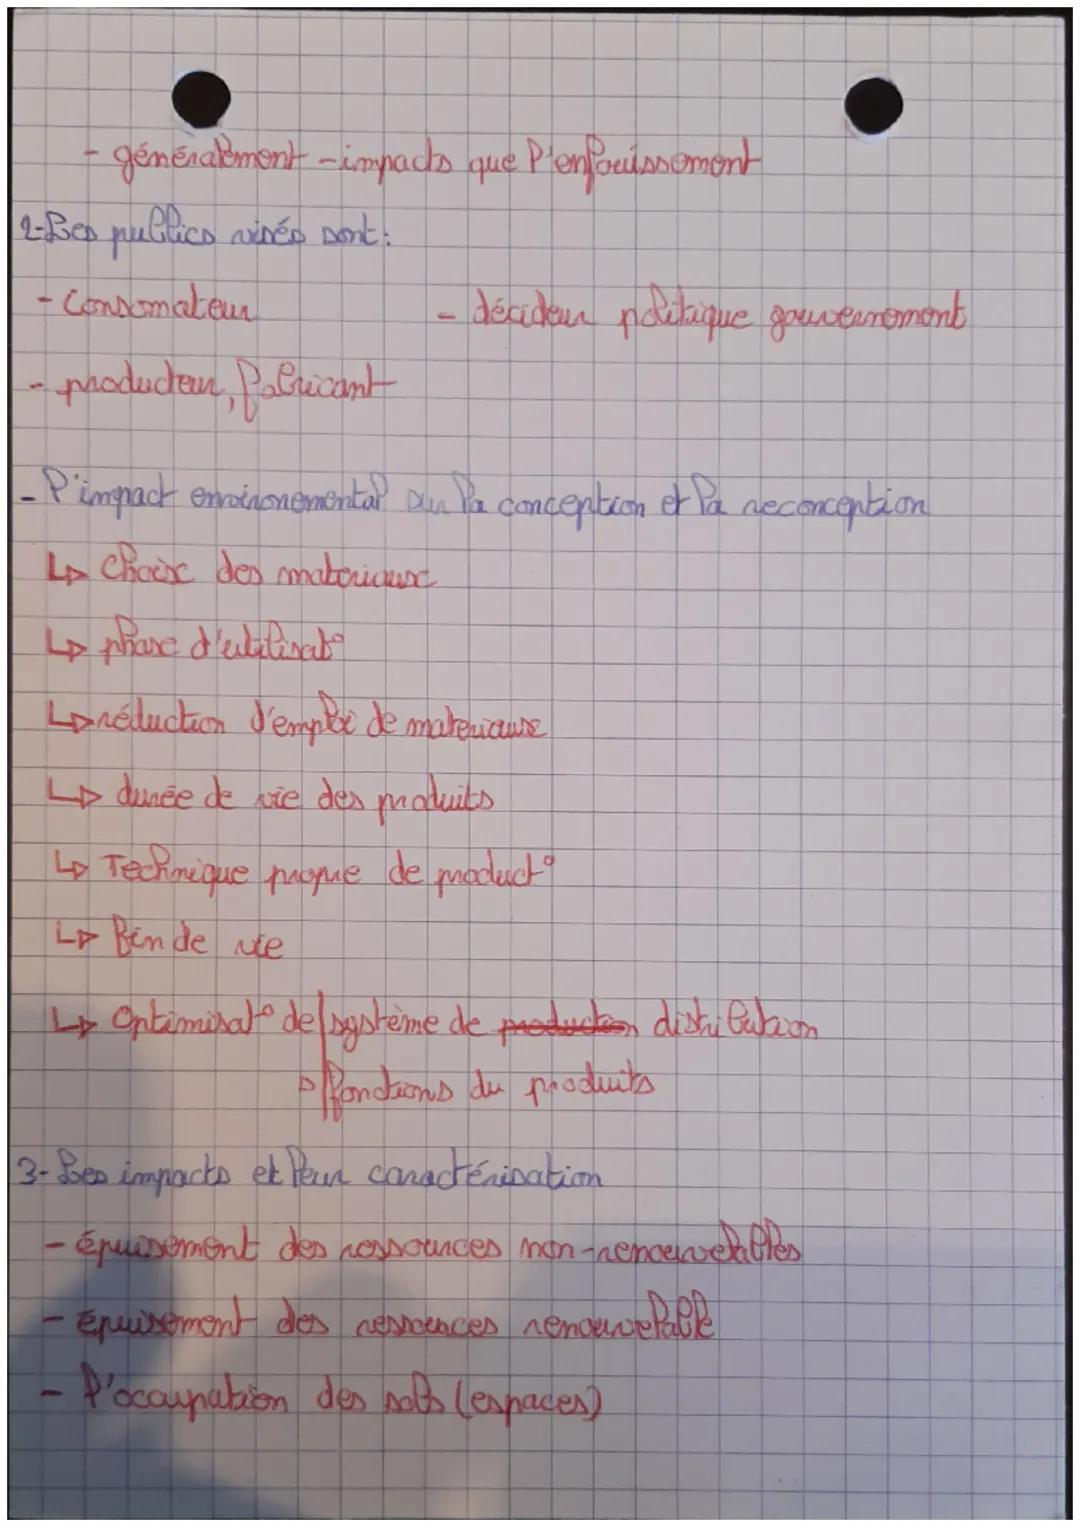 - généralement - impacts que l'enfouissement
2- Les publics visés sont:
- Consomateur - décideur politique gouvernement
- producteur, fabricant
- l'impact environemental sur la conception et la reconception
↳ Choix des materiaux
↳ phase d'utilisat°
↳ réduction d'emploi de materiaux
↳ durée de vie des produits
↳ Technique propre de product°
↳ Fin de vie
↳ Optimisat° de système de production distribution
fonctions du produits
3- Les impacts et leur caractérisation
- épuisement des ressources non-renouvelables
- épuisement des ressources renouvelable
- l'occupation des sols (espaces)